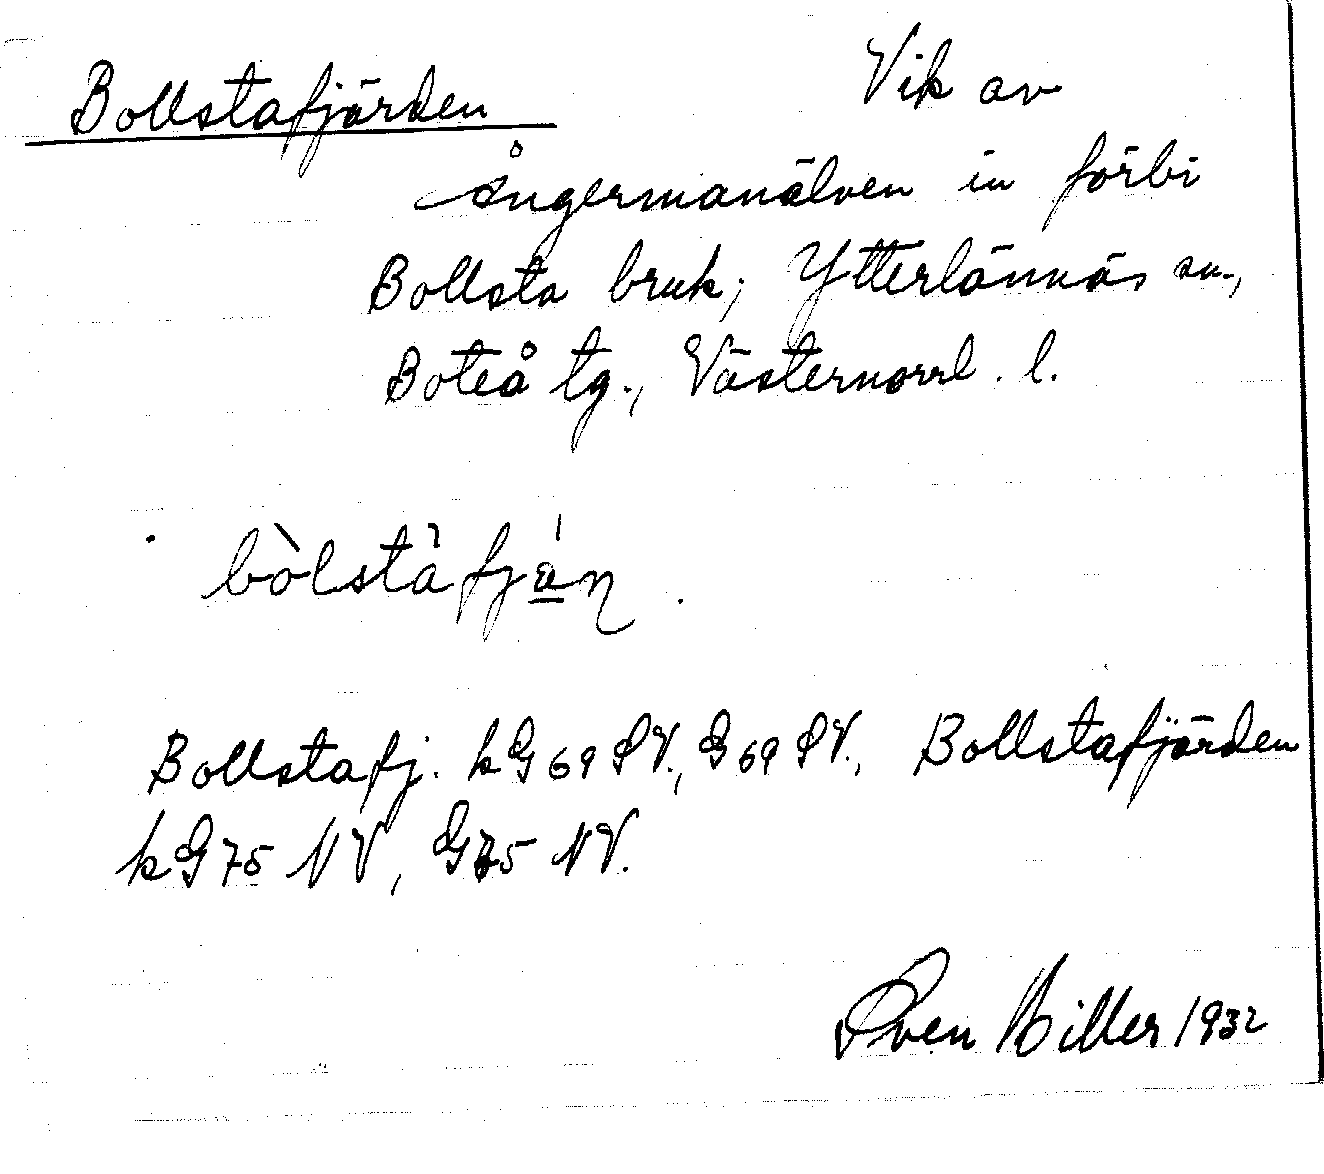 Bollstafjärden Vik av
Ångermanälven in förbi
Bollsta bruk; Ytterlännäs sn.,
Boteå tg., Västernorrl. l.
bòlstàfján.
Bollstafj. kG69 SV., G69 SV., Bollstafjärden
kG75 NV, G75 NV.
Sven Hiller 1932